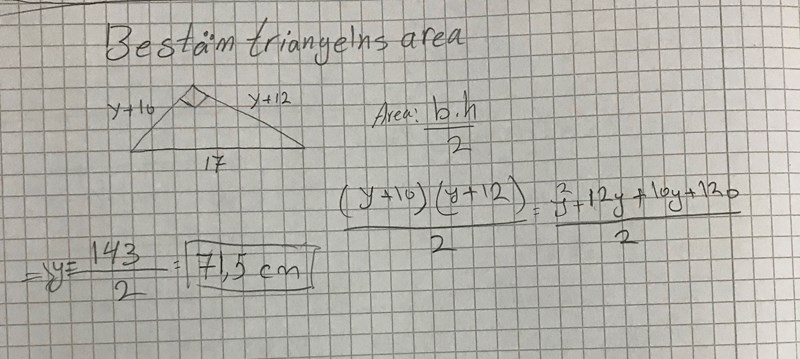 Bestäm triangelns area
y+10 y+12
17
Area: b.h
2
(y+10)(y+12) = y²+12y+10y+120
2 2
=> y = 143 = 71,5 cm
2